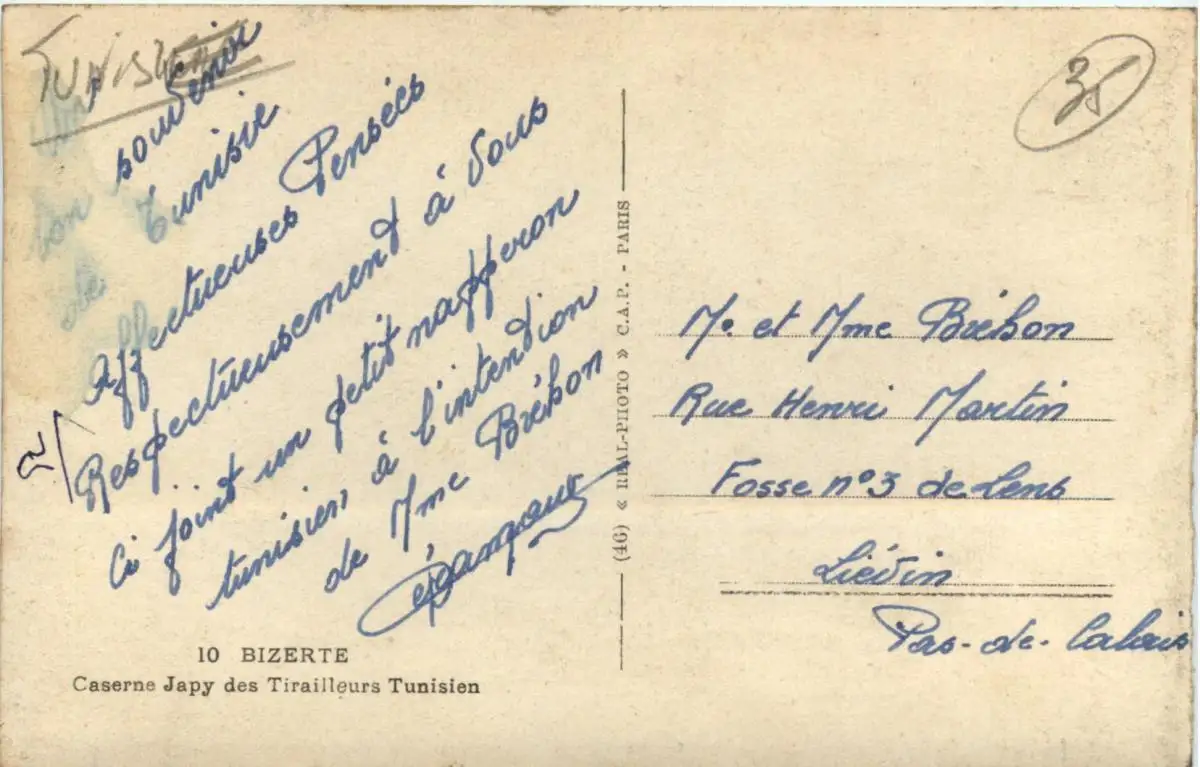 TUNISIE
35
Un
bon souvenir
de Tunisie
Affectueuses Pensées
Respectueusement à Vous
Ci joint un petit napperon
tunisien à l'intention
de Mme Bréhon
10 BIZERTE
Caserne Japy des Tirailleurs Tunisien
(46) « REAL-PHOTO » C.A.P. - PARIS
Mr et Mme Bréhon
Rue Henri Martin
Fosse n°3 de Lens
Liévin
Pas-de-Calais